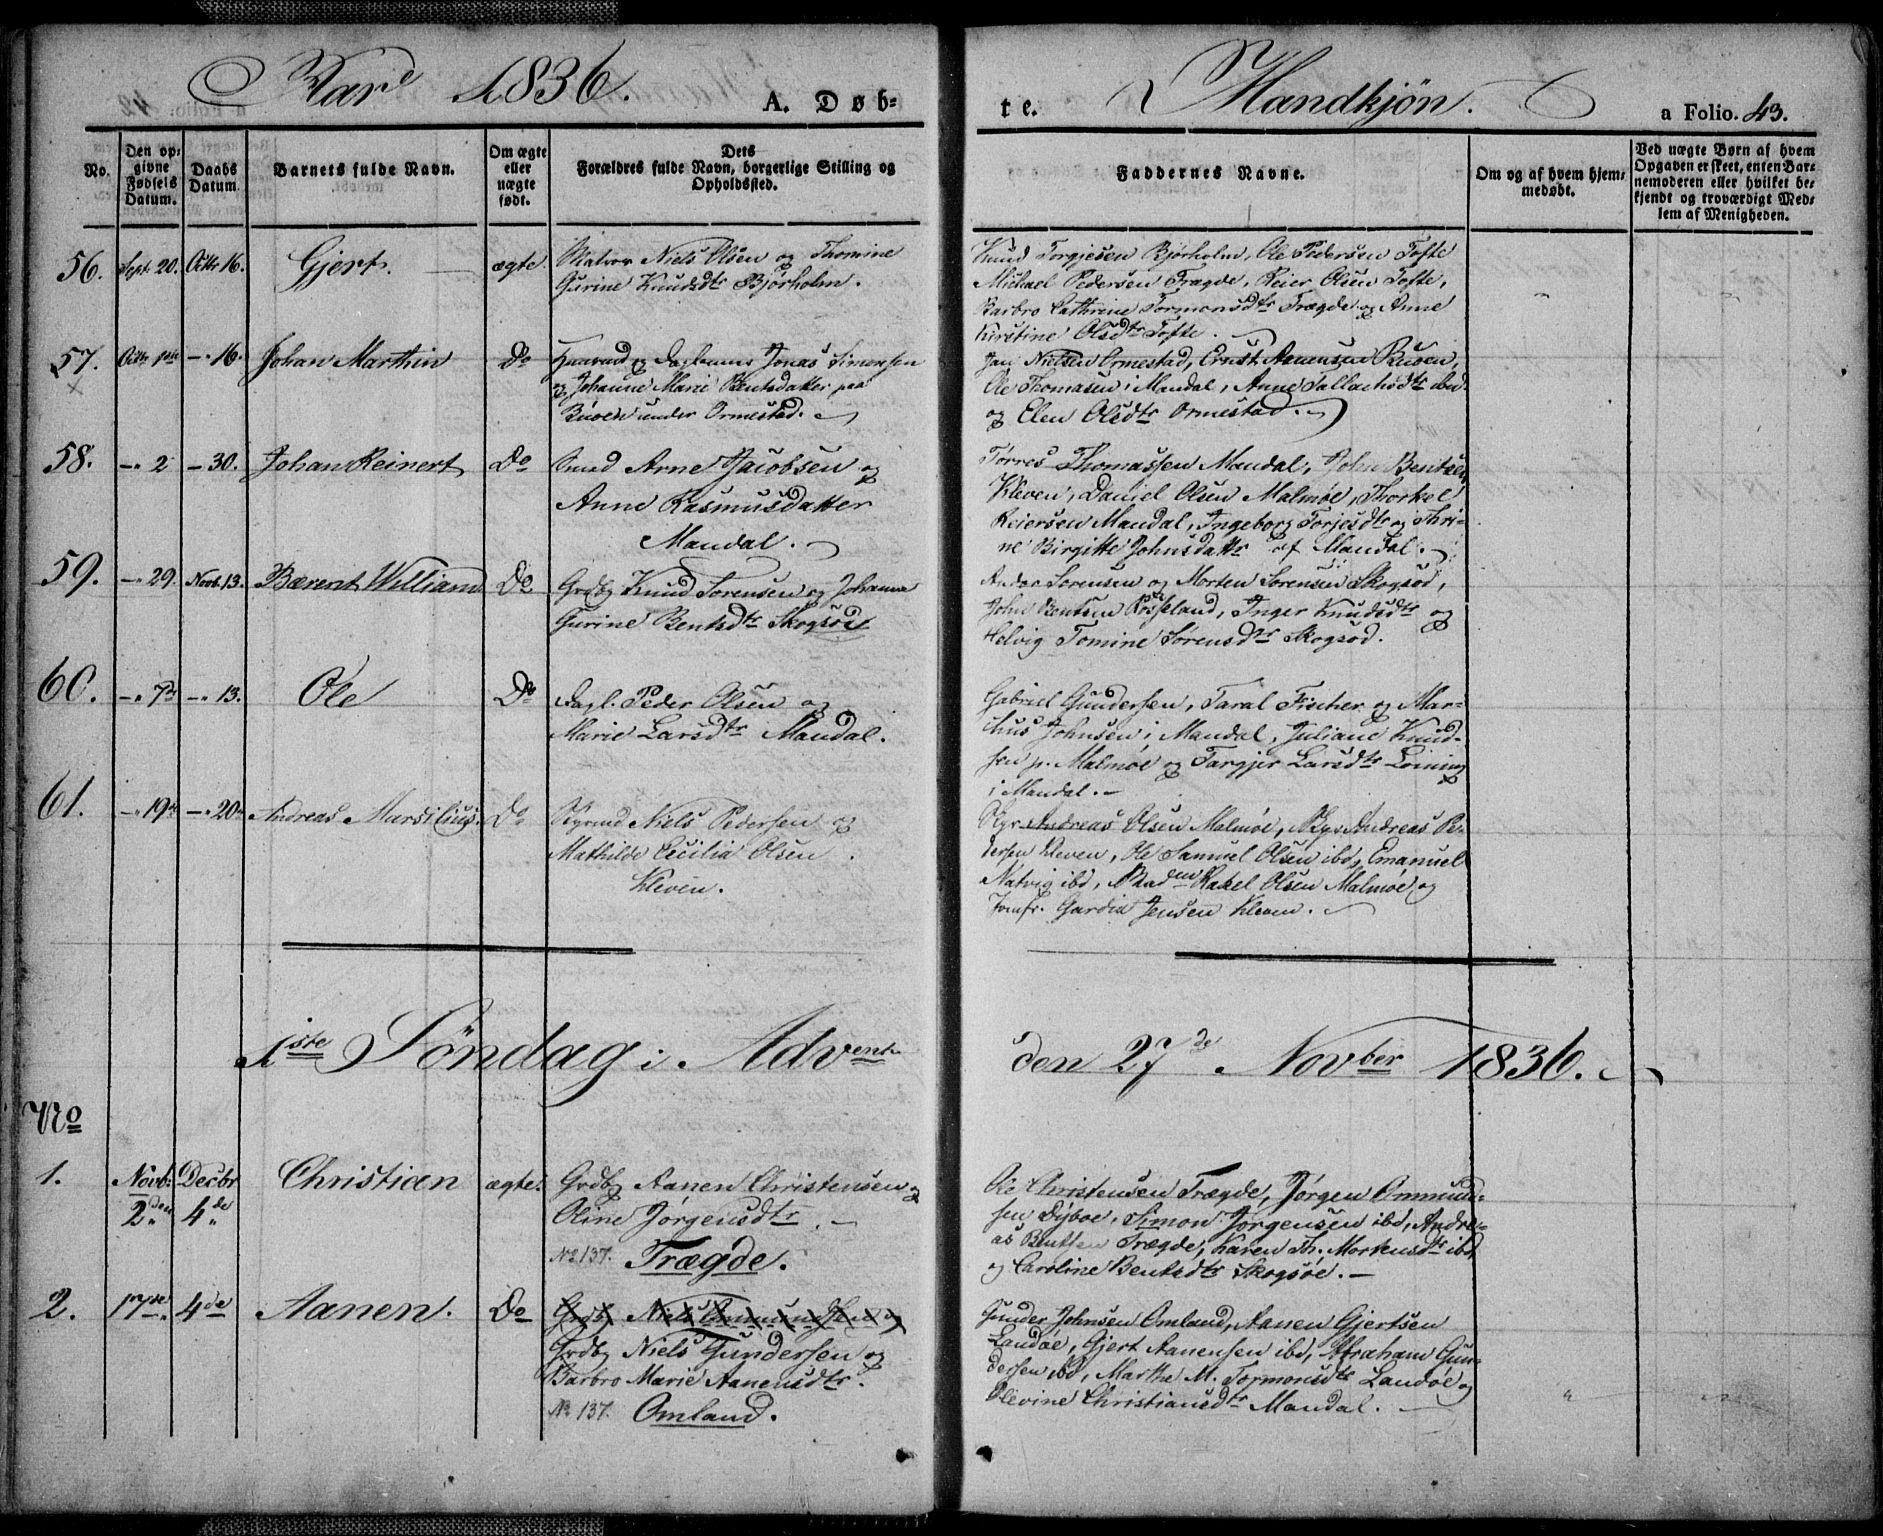 Aar 1836. A. Døb=
te. Mandkjøn. a Folio. 43.
No.
Den op=
givne
Fødsels
Datum.
Daabs
Datum.
Barnets fulde Navn.
Om ægte
eller
uægte
født.
Dets
Forældres fulde Navn, borgerlige Stilling og
Opholdssted.
Faddernes Navne.
Om og af hvem hjem=
medøbt.
Ved uægte Børn af hvem
Opgaven er skeet, enten Bar=
nemoderen eller hvilket be=
kjendt og troværdigt Med=
lem af Menigheden.
56. Sept. 20. Octbr 16. Gjert. ægte.
Matros Niels Olsen og Thomine
Gurine Knudsdtr Bjørholm.
Knud Torgjesen Bjørholm, Ole Pedersen Tofte
Michael Pedersen Trægde, Reier Olsen Tofte,
Barbro Cathrine Tormonsdtr Trægde og Anne
Kirstine Olsdtr Tofte.
57. Octbr 1ste 16. Johan Marthin Do
Jonas Simonsen
og Johanne Marie Bentsdatter paa
under Ormestad.
Jan Nielsen Ormestad, Ernst Aanensen
Ole Thomasen i Mandal, Anne Tallachsdtr ibd
og Elen Olsdtr Ormestad.
58. 2 30. Johan Reinert Do
Smed Arne Jacobsen og
Anne Rasmusdatter
Mandal.
Tørres Thomassen Mandal, John Bentsen
Kleven, Daniel Olsen Malmøe, Thorkel
Reiersen Mandal, Ingeborg Torjesdtr og Thri=
ne Birgitte Johnsdattr af Mandal.
59. 29. Novb. 13. Bærent William Do
Grdbr Knud Sørensen og Johanne
Gurine Bentsdtr Skogsøe
Sørensen og Morten Sørensen Skogsøe,
John Bentsen Rosseland, Inger Knudsdtr og
Helvig Tomine Sørensdtr Skogsøe.
60. 7de 13. Ole Do
Dagl. Peder Olsen og
Marie Larsdtr Mandal.
Gabriel Gundersen, Taral Fischer og Mar=
Johnsen i Mandal, Juliane Knud=
sen p. Malmøe og Targjer Larsdtr
i Mandal.
61. 19de 20de Andreas Marsilius. Do
Styrmd Niels Pedersen og
Mathilde Cecilia Olsen
Kleven.
Andreas Olsen Malmøe, Andreas Pe=
dersen Kleven, Ole Samuel Olsen ibd, Emanuel
Natvig ibd, Rakel Olsen Malmøe og
Jomfr. Jensen Kleven.
1ste Søndag i Advent
den 27de Novber 1836.
No
1. Novb: 2den Decbr 4de Christian ægte.
Grdbr Aanen Christensen og
Oline Jørgensdtr.
No 137. Trægde.
Ole Christensen Trægde, Jørgen Ommund=
sen Dyboe, Simon Jørgensen ibd, Andre=
as Bentsen Trægde, Karen Th. Mortensdtr ibd
og Caroline Bentsdtr Skogsøe.
2. 17de 4de Aanen. Do
Grdbr Niels Ommundsen og
Grdbr Niels Gundersen og
Barbro Marie Aanensdtr.
No 137. Omland.
Gunder Johnsen Omland, Aanen Gjertsen
Landøe, Gjert Aanensen ibd, Abraham Gun=
dersen ibd, Marthe M. Tormonsdtr Landøe og
Olevine Christiansdtr Mandal.